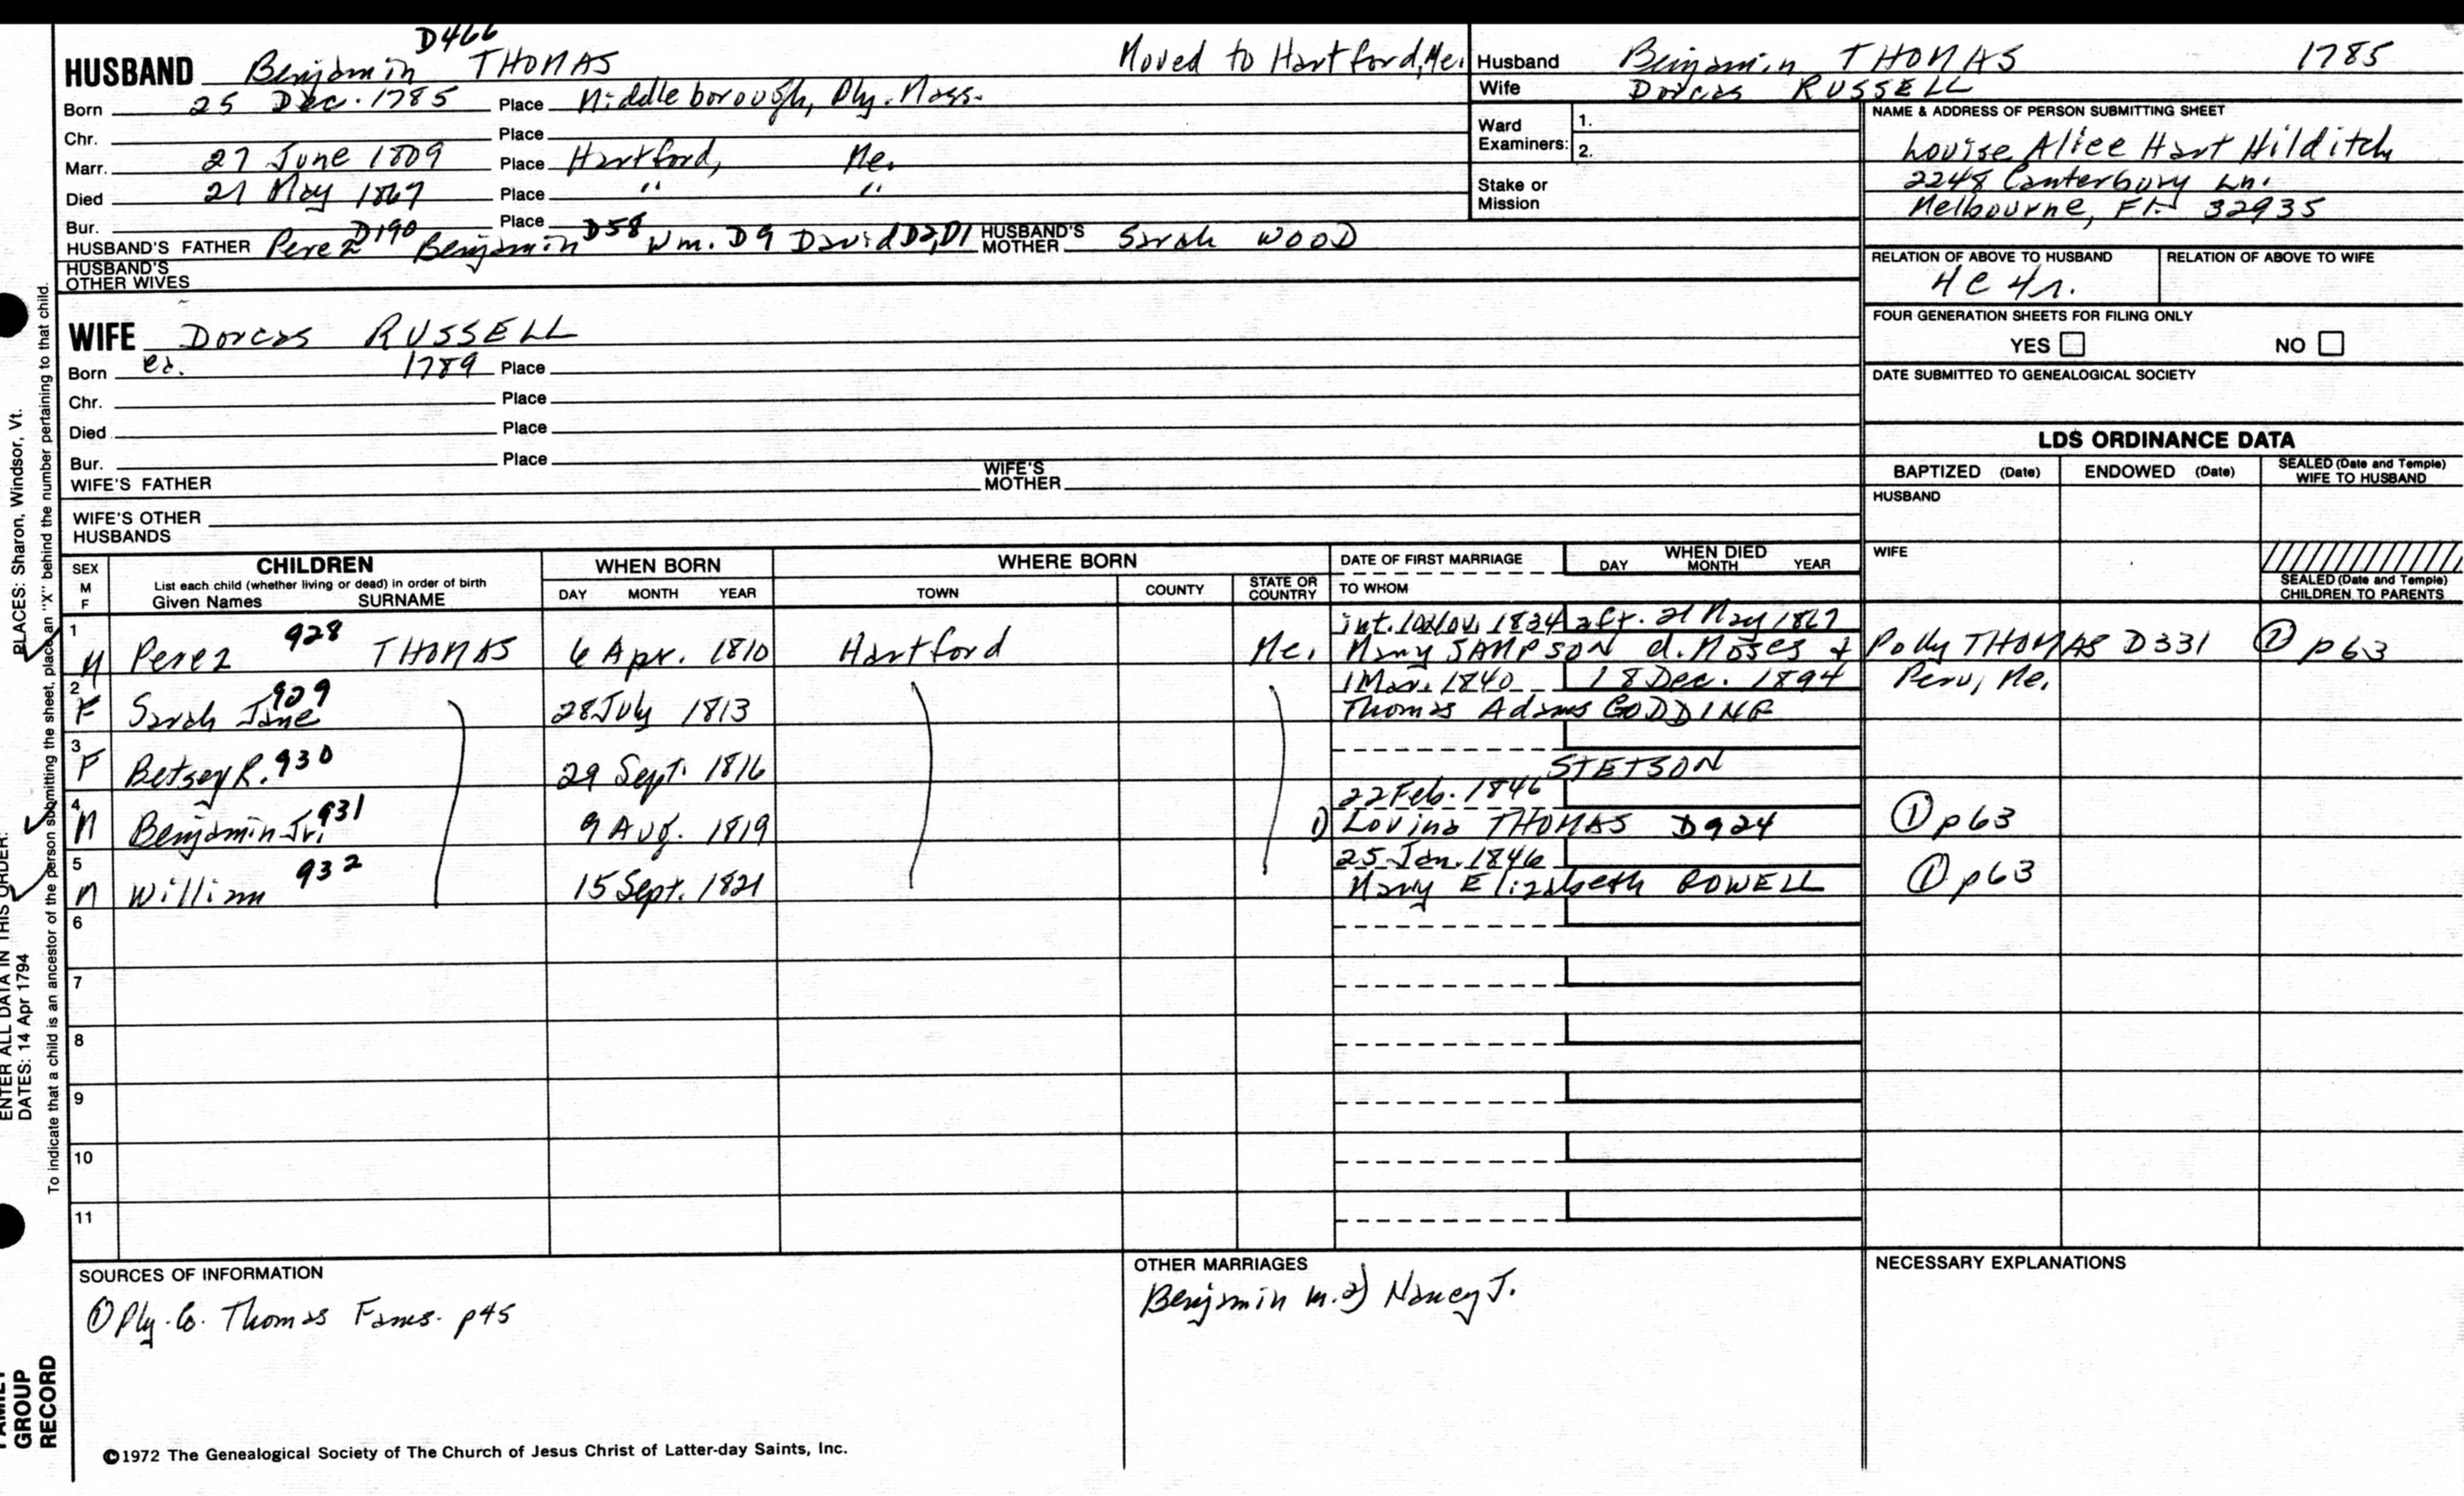 D466
HUSBAND Benjamin THOMAS Moved to Hartford, Me.
Born 25 Dec. 1785 Place Middleborough, Ply. Mass.
Chr. Place
Marr. 27 June 1809 Place Hartford, Me.
Died 21 May 1867 Place " "
Bur. Place
HUSBAND'S FATHER Perez D190 Benjamin D58 Wm. D9 David D2, D1 HUSBAND'S MOTHER Sarah WOOD
HUSBAND'S OTHER WIVES
Husband Benjamin THOMAS 1785
Wife Dorcas RUSSELL
Ward Examiners: 1.
2.
Stake or Mission
NAME & ADDRESS OF PERSON SUBMITTING SHEET
Louise Alice Hart Hilditch
2248 Canterbury Ln.
Melbourne, Fl. 32935
RELATION OF ABOVE TO HUSBAND RELATION OF ABOVE TO WIFE
4c 4r.
FOUR GENERATION SHEETS FOR FILING ONLY
YES NO
DATE SUBMITTED TO GENEALOGICAL SOCIETY
WIFE Dorcas RUSSELL
Born ca. 1789 Place
Chr. Place
Died Place
Bur. Place
WIFE'S FATHER WIFE'S MOTHER
WIFE'S OTHER HUSBANDS
LDS ORDINANCE DATA
BAPTIZED (Date) ENDOWED (Date) SEALED (Date and Temple) WIFE TO HUSBAND
HUSBAND
WIFE
SEALED (Date and Temple) CHILDREN TO PARENTS
SEX M F CHILDREN WHEN BORN WHERE BORN DATE OF FIRST MARRIAGE WHEN DIED
List each child (whether living or dead) in order of birth
Given Names SURNAME DAY MONTH YEAR TOWN COUNTY STATE OR COUNTRY TO WHOM DAY MONTH YEAR
1 int. 10 Nov. 1834 aft. 21 May 1867
M Perez 928 THOMAS 6 Apr. 1810 Hartford Me. Mary SAMPSON d. Moses & Polly THOMAS D331 ② p63
2 1 Mar. 1840 18 Dec. 1894 Peru, Me.
F Sarah Jane 929 28 July 1813 Thomas Adams GODDING
3
F Betsey R. 930 29 Sept. 1816 STETSON
4 22 Feb. 1846
M Benjamin Jr. 931 9 Aug. 1819 1) Lovina THOMAS D924 ① p63
5 25 Jan. 1846
M William 932 15 Sept. 1821 Mary Elizabeth ROWELL ① p63
6
7
8
9
10
11
SOURCES OF INFORMATION
① Ply. Co. Thomas Fams. p45
OTHER MARRIAGES
Benjamin m. 2) Nancy J.
NECESSARY EXPLANATIONS
©1972 The Genealogical Society of The Church of Jesus Christ of Latter-day Saints, Inc.
PLACES: Sharon, Windsor, Vt.
ENTER ALL DATA IN THIS ORDER:
DATES: 14 Apr 1794
To indicate that a child is an ancestor of the person submitting the sheet, place an "X" behind the number pertaining to that child.
FAMILY
GROUP
RECORD